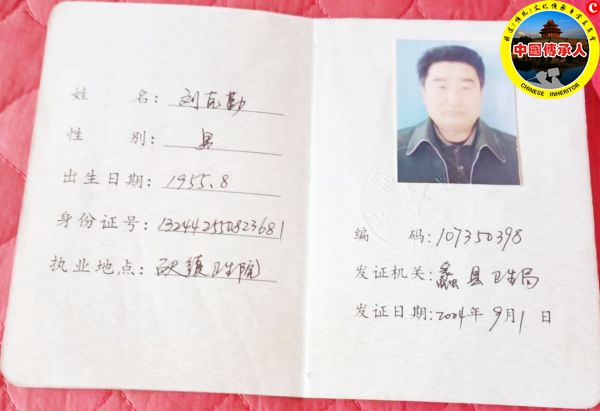 C
中國傳承人
CHINESE INHERITOR
姓 名: 刘克勤
性 别: 男
出生日期: 1955.8
身份证号: 132442550823681
执业地点: 卫生院
编 码: 107350398
发证机关: 蠡县卫生局
发证日期: 2004年9月1日